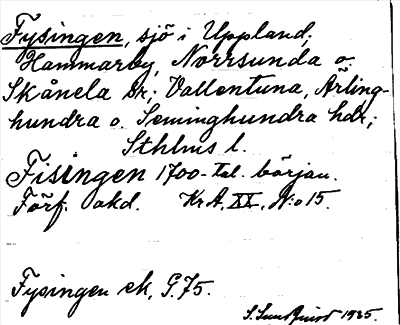 Fysingen, sjö i Uppland;
Hammarby, Norrsunda o.
Skånela sr; Vallentuna, Ärling-
hundra o. Seminghundra hdr;
Sthlms l.
Fisingen 1700-tal. början.
Förf. okd. KrA, XX, N:o 15.
Fysingen ek, G.75.
S. Sundquist 1925.